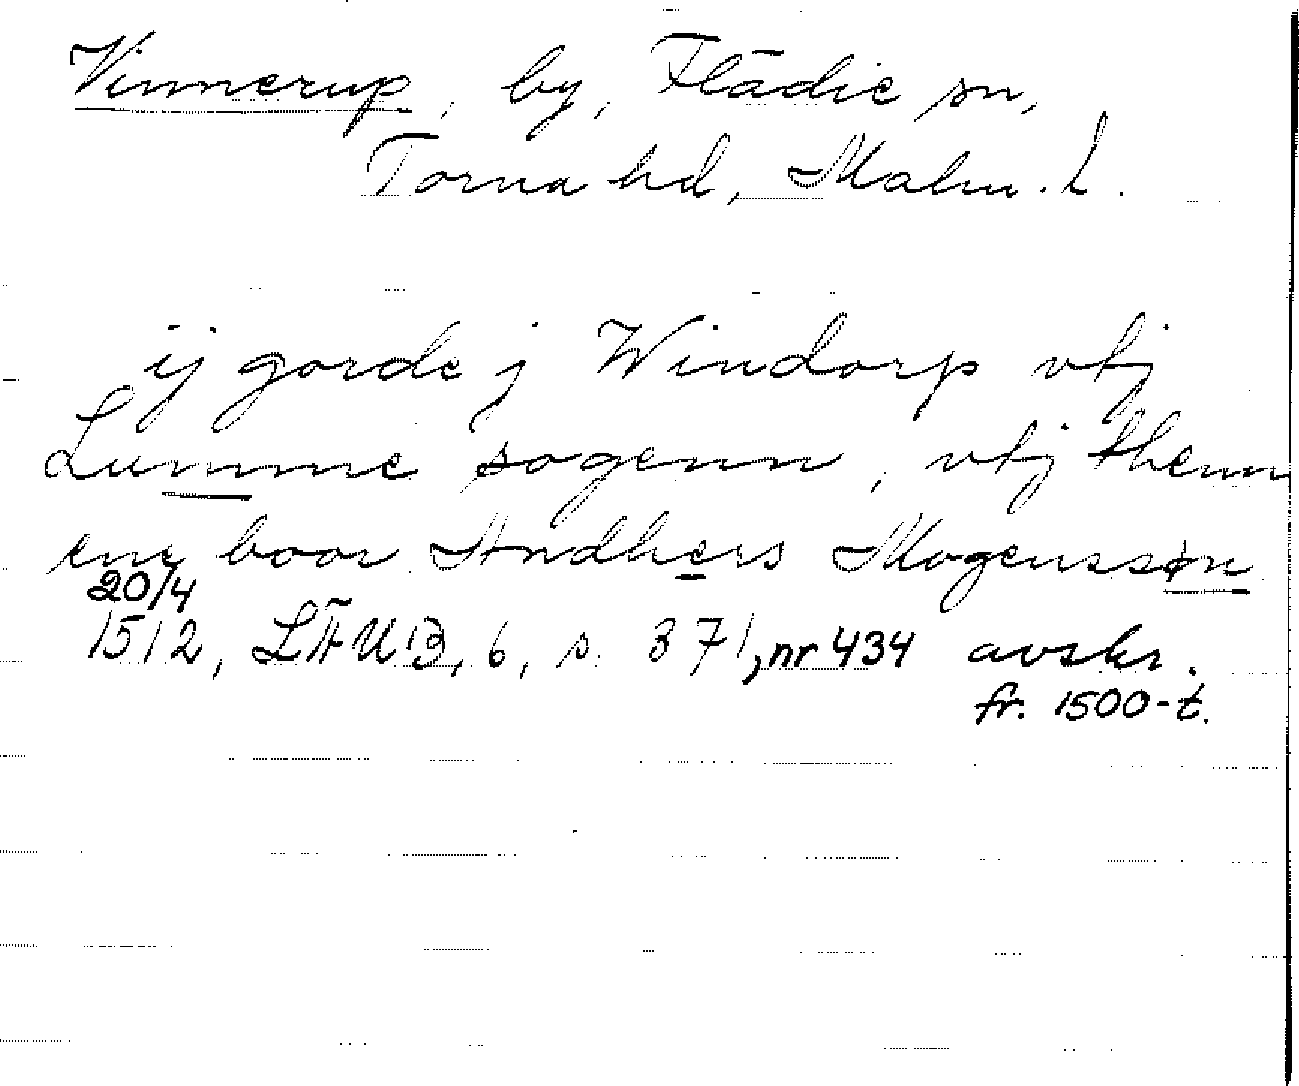 Vinnerup, by, Flädie sn,
Torna hd, Malm. l.
ij gorde j Windorp vtj
Lumme sogenn, vtj thenn
ene boor Andhers Mogenssøn
20/4
1512, LÄUB, 6, s. 371, nr 434 avskr.
fr. 1500-t.